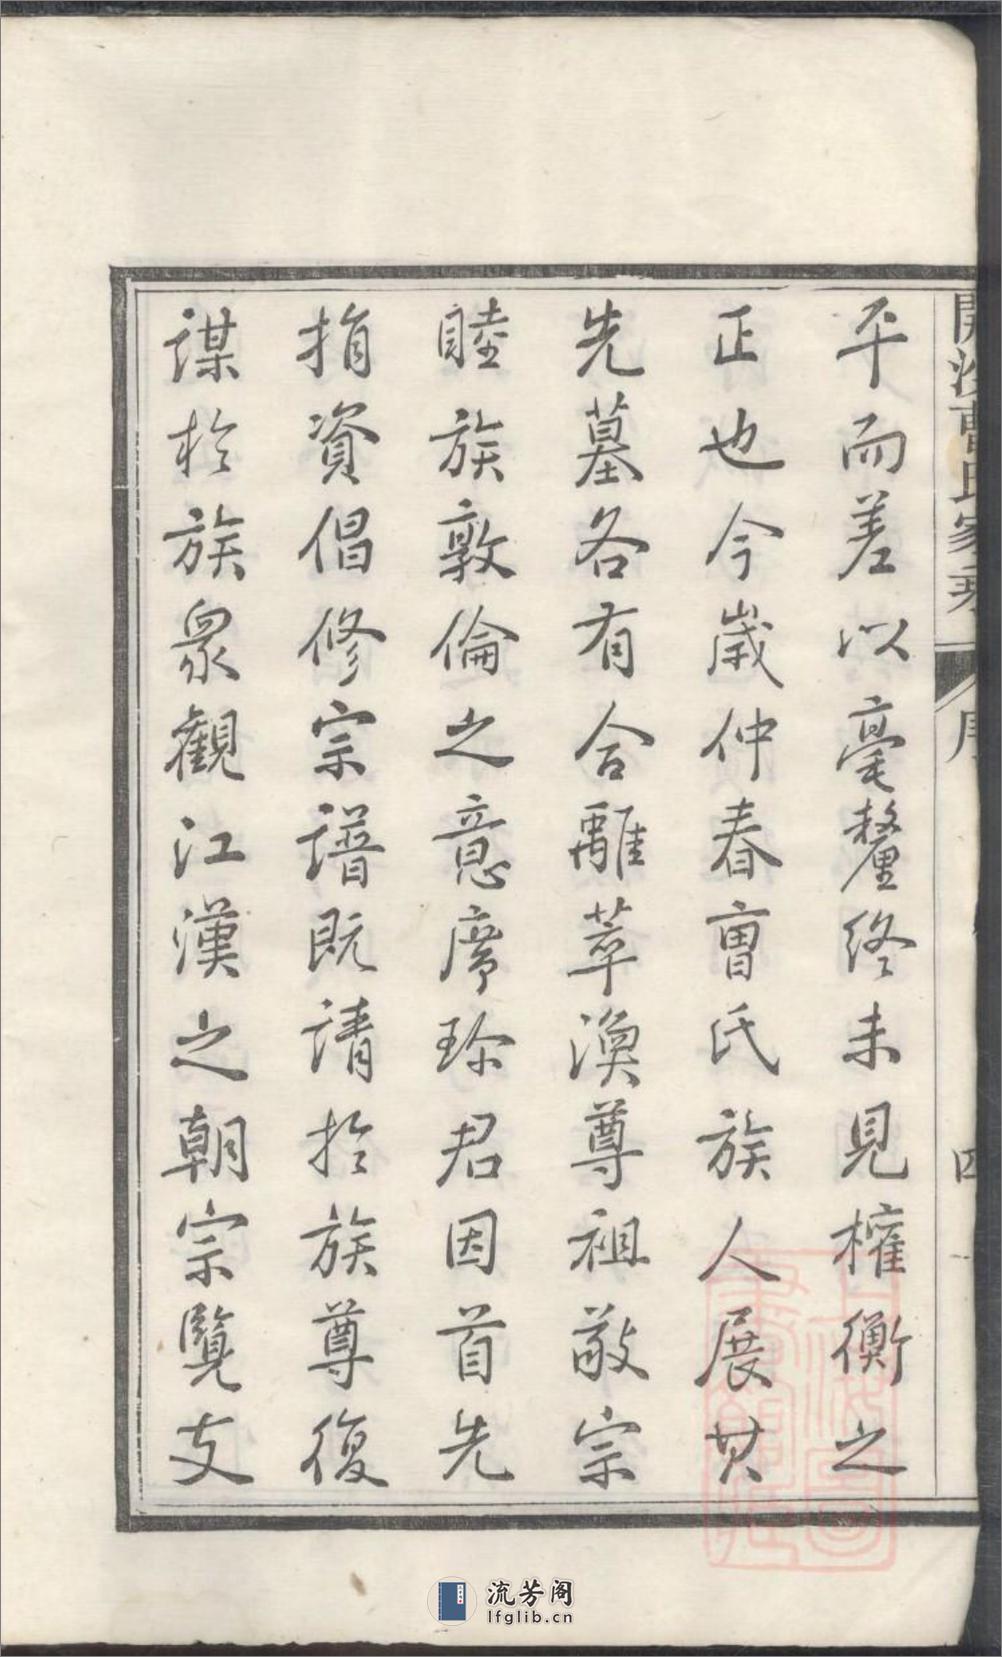 平而差以毫釐終未見權衡之
正也今歲仲春曺氏族人展其
先墓各有合離萃渙尊祖敬宗
睦族敦倫之意廣珍君因首先
捐資倡修宗譜既請於族尊復
謀於族眾觀江漢之朝宗覽支
開沙曹氏家乘
序
四
流芳阁
lfglib.cn